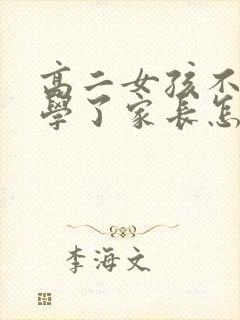 高二女孩不
學了家長怎
李海文